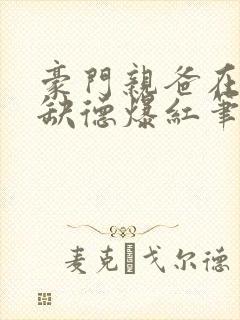 豪門親爸在
缺德爆紅筆
麦克 戈尔德